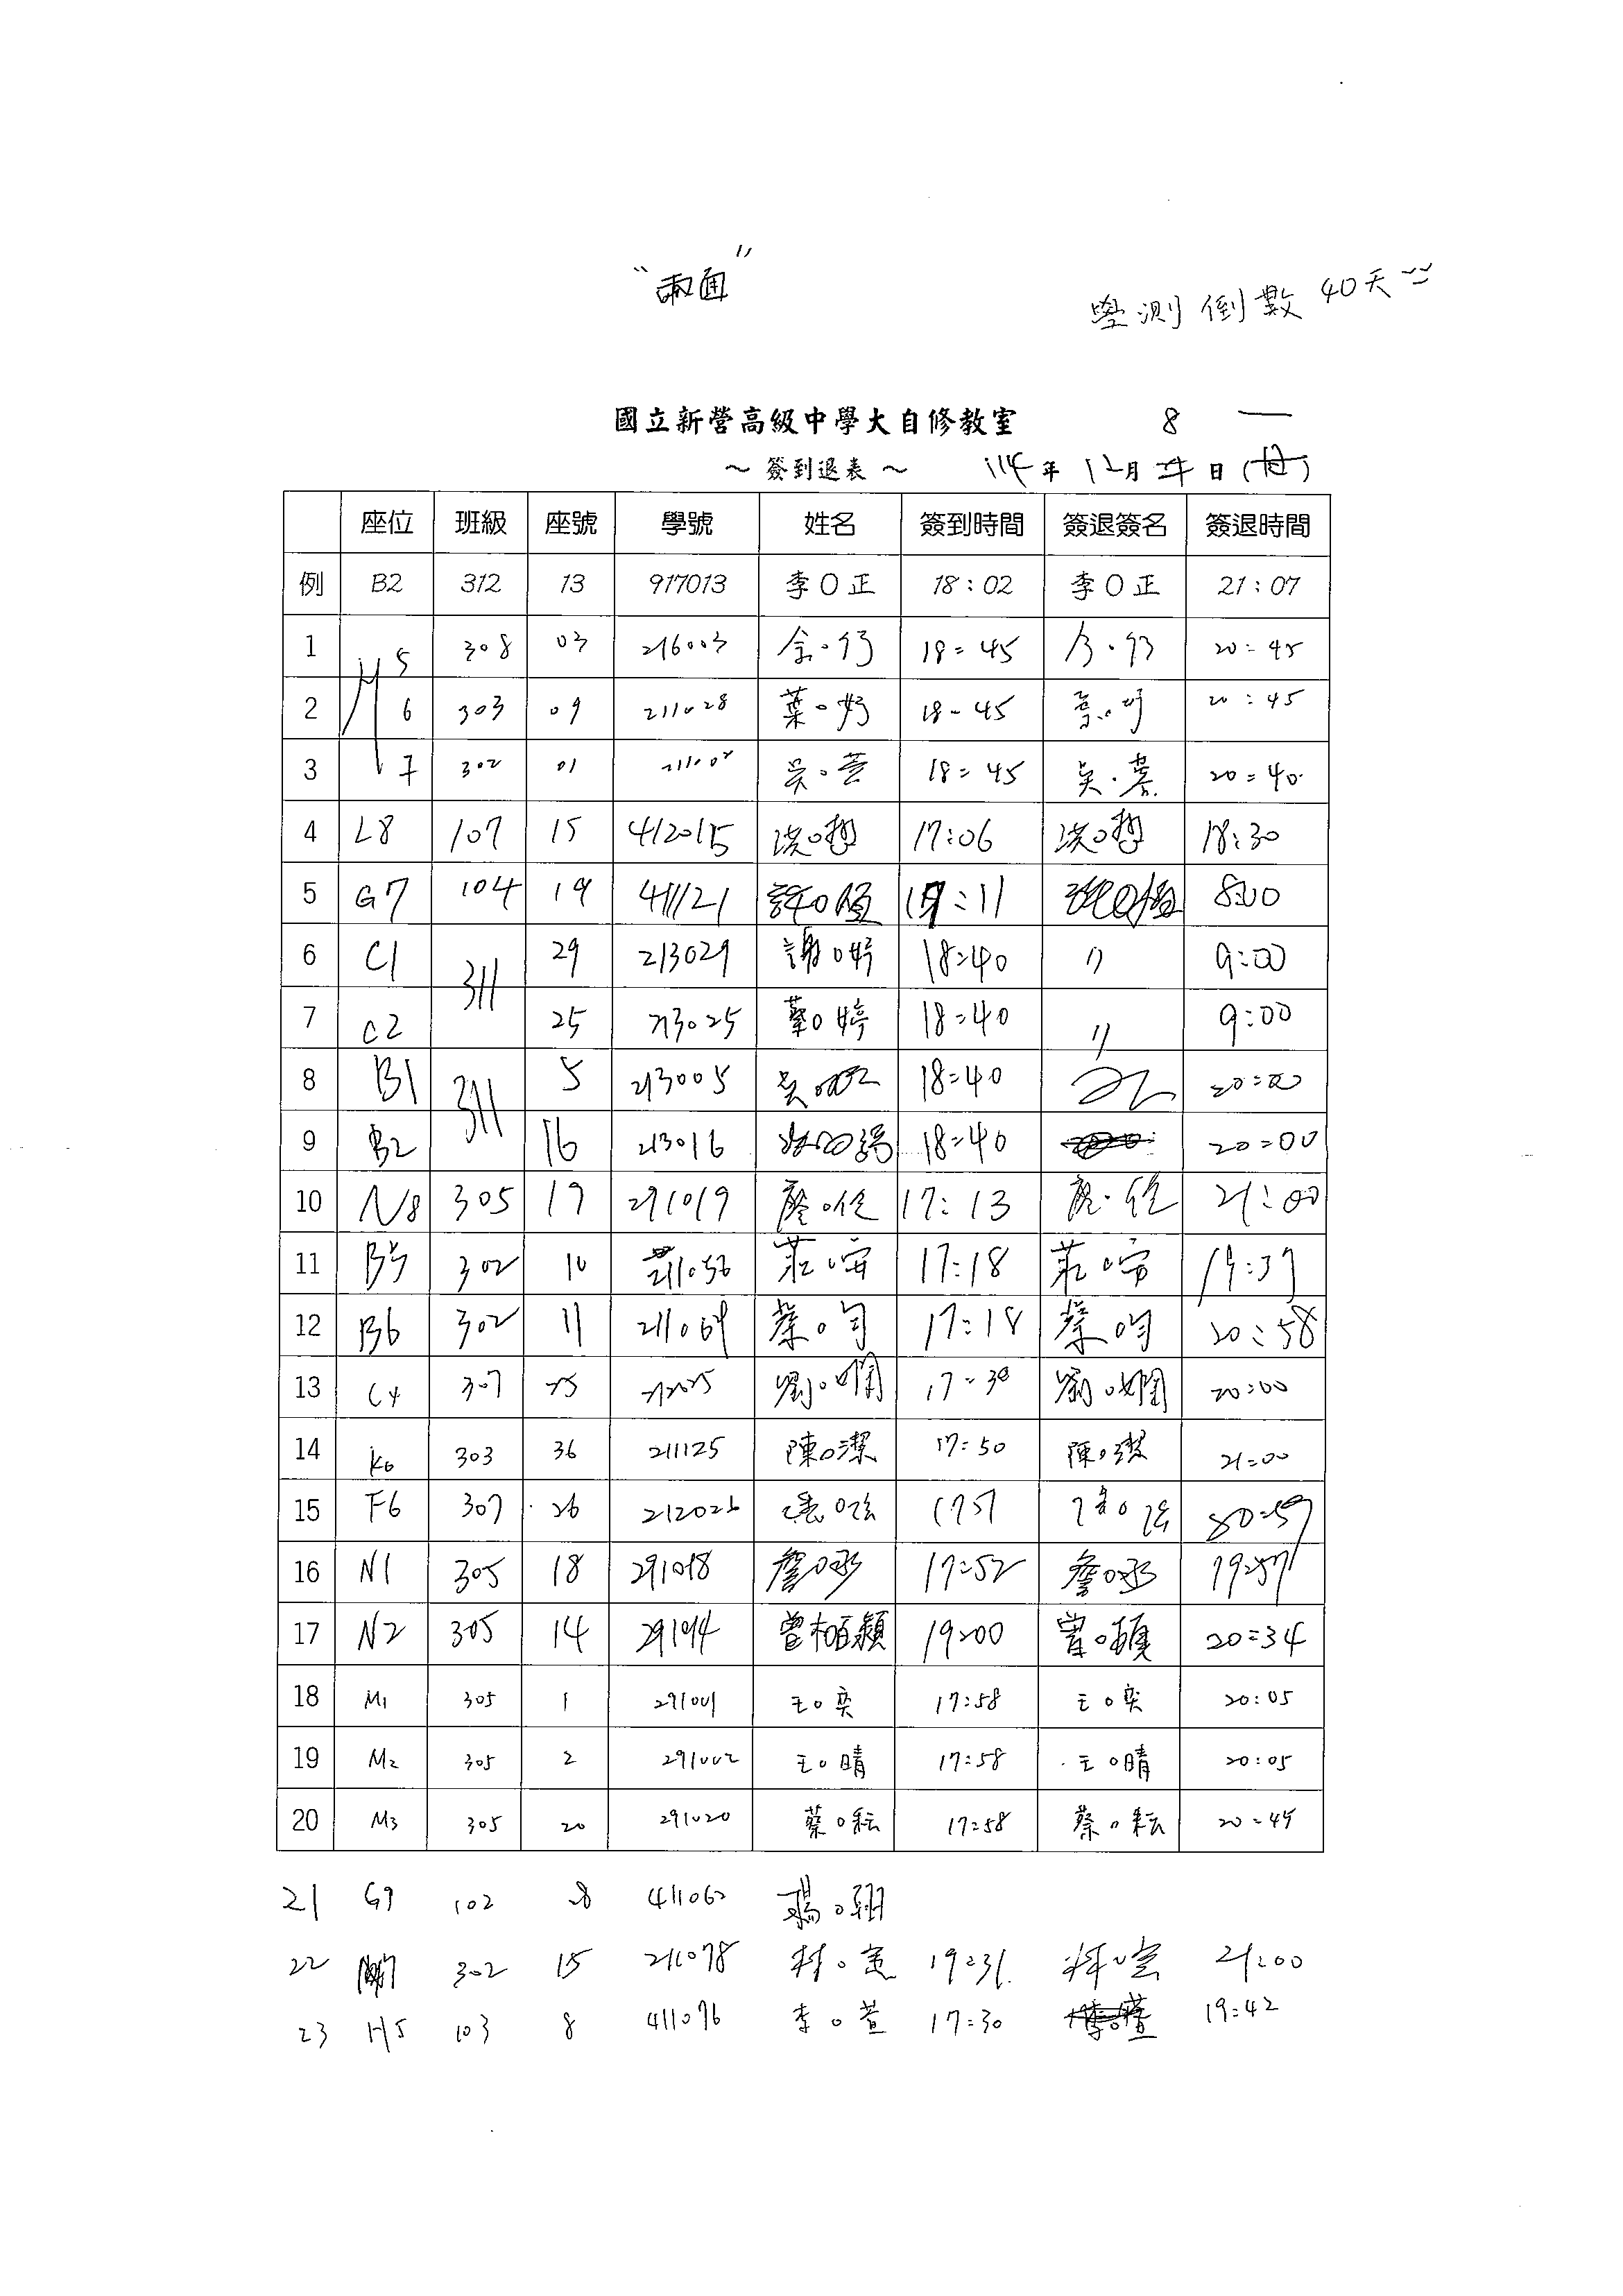 "兩面"
學測倒數 40天
國立新營高級中學大自修教室 8 一
～ 簽到退表 ～ 114年 12月 日 ( )
座位 班級 座號 學號 姓名 簽到時間 簽退簽名 簽退時間
例 B2 312 13 917013 李O正 18:02 李O正 21:07
1 M5 308 03 216003 18:45 20:45
2 6 303 09 211028 葉O妤 18-45 20:45
3 7 302 01 吳.萱 18:45 吳. 20:40
4 L8 107 15 412015 洪O翔 17:06 洪O翔 18:30
5 G7 104 19 411121 許O 17:11 8:00
6 C1 311 29 213029 謝O婷 18:40 〃 9:00
7 C2 25 213025 蔡O婷 18:40 〃 9:00
8 B1 311 5 213005 吳 18:40 20:00
9 B2 16 213016 18:40 20:00
10 N8 305 19 291019 廖O佐 17:13 21:00
11 B5 302 10 211056 莊O 17:18 莊O 19:37
12 B6 302 11 211069 蔡O昀 17:18 蔡O昀 20:58
13 C4 307 25 212025 劉O嫻 17:30 劉O嫻 20:00
14 K6 303 36 211125 陳O潔 17:50 陳O潔 21:00
15 F6 307 26 212026 1757 20:59
16 N1 305 18 291018 詹O丞 17:52 詹O丞 19:57
17 N2 305 14 291014 曾栢穎 19:00 曾O穎 20:34
18 M1 305 1 291001 王O奕 17:58 王O奕 20:05
19 M2 305 2 291002 王O晴 17:58 王O晴 20:05
20 M3 305 20 291020 蔡O耘 17:58 蔡O耘 20:45
21 G9 102 28 411062 楊O翔
22 302 15 211078 林O 19:31 林O 21:00
23 H5 103 8 411096 李O萱 17:30 19:42